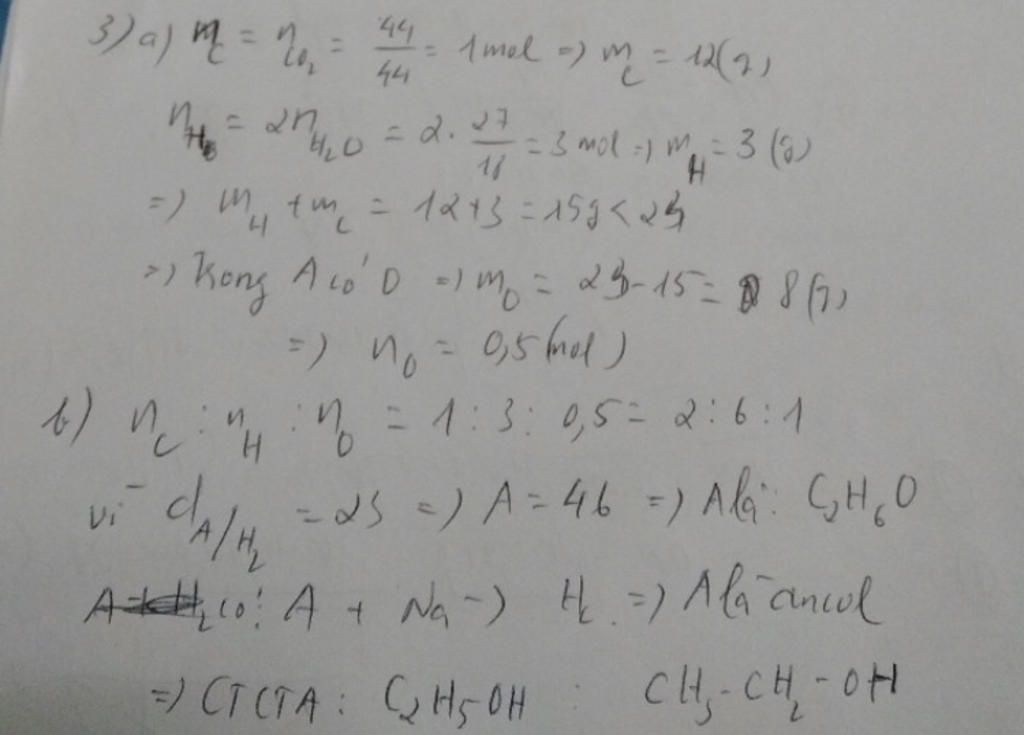 3) a) n_C = n_CO₂ = 44/44 = 1 mol => m_C = 12(g)
n_H = 2n_H₂O = 2 . 27/18 = 3 mol => m_H = 3 (g)
=> m_H + m_C = 12 + 3 = 15g < 23
=> trong A có O => m_O = 23 - 15 = 8 (g)
=> n_O = 0,5 (mol)
b) n_C : n_H : n_O = 1 : 3 : 0,5 = 2 : 6 : 1
vì d_A/H₂ = 23 => A = 46 => A là: C₂H₆O
có: A + Na -> H₂ => A là ancol
=> CTCTA : C₂H₅OH : CH₃-CH₂-OH